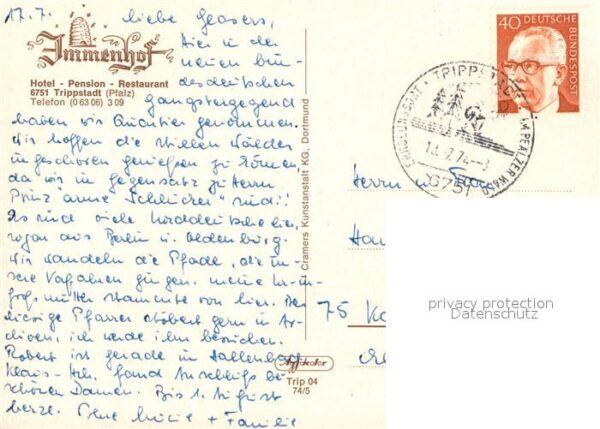 17.7.
liebe Geasers,
Immenhof
Hotel - Pension - Restaurant
6751 Trippstadt (Pfalz)
Telefon (0 63 06) 3 09
Hier in der
neuen bun-
desdeutschen
gangstergegend
haben wir Quartier genommen.
Wir hoffen die stillen Wälder
ungeschoren genießen zu können,
da wir im gegensatz zu Herrn
Prinz "arme Schlucker" sind!!
Es sind viele Norddeutsche hier,
sogar aus Berlin u. Oldenburg.
Wir wandeln die Pfade, die un-
sere Vorfahren gingen, meine Ur-ur-
großmütter stammte von hier. Der
hiesige Pfarrer stöbert gern in Ar-
chiven, ich werde ihn besuchen.
Robert ist gerade in
Klaus - fand Anschluß bei
schönen Damen. Bis 1. August
herzl. + Familie
Cramers Kunstanstalt KG, Dortmund
Trip 04
74/5
40 DEUTSCHE BUNDESPOST
TRIPPSTADT
PFÄLZER WALD
675
Herrn u.
75
privacy protection
Datenschutz